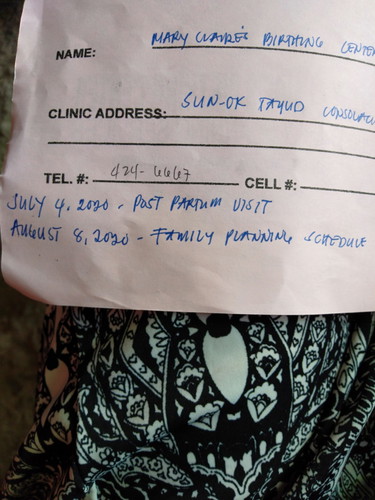 NAME: MARY CLAIRE'S BIRTHING CENTER
CLINIC ADDRESS: SUN-OK TAYUD CONSOLACI
TEL. #: 424-6667 CELL #:
JULY 4, 2020 - POST PARTUM VISIT
AUGUST 8, 2020 - FAMILY PLANNING SCHEDULE